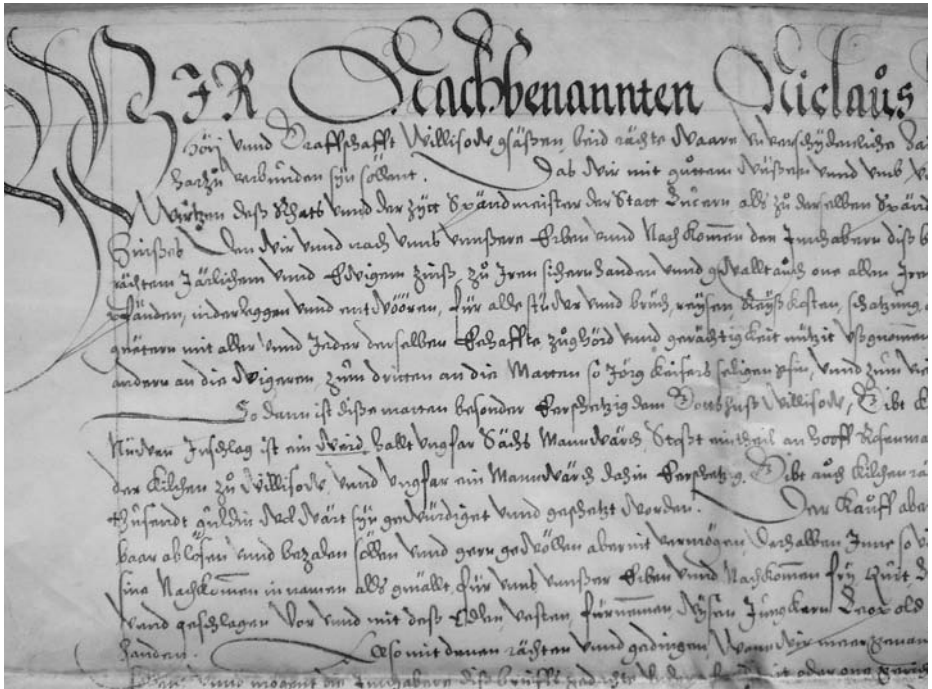 WIR Nachbenannten Niclaus
Hörj vnnd Graffschafft Willisow gsässen, beid rächte waare vnverschydenliche
harzů verbunden syn söllent. Das wir mit gůttem wüssen vnnd vmb
deß Rhats vnnd der zytt Spändmeister der Statt Lucern als zů derselben Spänd
Zinßes den wir vnnd nach vnns vnnßere Erben vnnd Nachkomen den Innhabern diß
rächtem Järlichem vnnd Ewigem zinß, zů Iren sichern handen vnnd gwallt auch one allen Iren
pfänden, niderleggen vnnd entwöören, für alle stüwr vnnd brüch, reysen, Reyßkosten, schatzung,
güetern mit aller vnnd Jeder derselben Ehaffte, zůghörd vnnd gerächtigkeit nützit vßgnommen
andern an die wigeren, zum dritten an die Matten so Jörg Keisers seligen gsin, vnnd zum
So dann ist dise matten besonder Eerschetzig dem Gottshuß Willisow, Gibt
Nüwen Inschlag ist ein weid hallt vngfar Sächs Mannwärch, Stoßt ein theil an hooff
der Kilchen zů Willisow, vnnd vngfar ein Mannwärch dahin Eerschetzig. Gibt auch Kilchen
thusendt guldin wol wärt syn gewürdiget vnnd geschetzt worden. Der Kauff aber
baar ablösen vnnd bezalen söllen vnnd gern gewöllen aber nit vermögen, derhalben Inne so
sine Nachkomen in namen als gmällt, für vnns vnnßer Erben vnnd Nachkomen fry, Quit
vnnd geschlagen Vor vnnd mit deß Edlen, vesten, fürnemen, wysen Junckern
handen. Also mit denen rächten vnnd gedingen, Wann wir
vnnd mögent die Innhabere diß brieffs